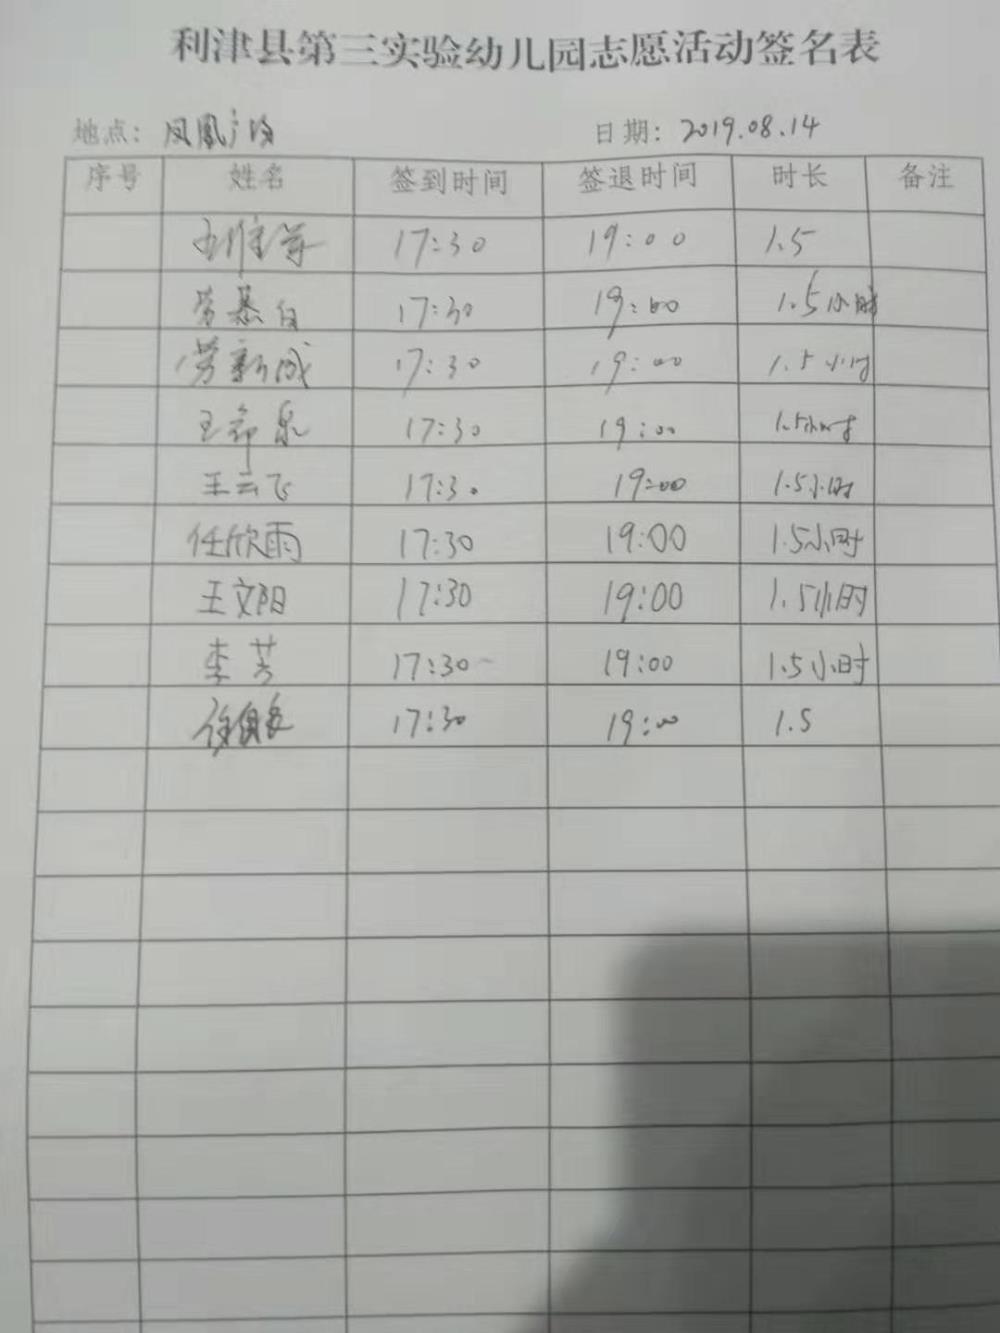 利津县第三实验幼儿园志愿活动签名表
地点: 凤凰广场 日期: 2019.08.14
序号 姓名 签到时间 签退时间 时长 备注
17:30 19:00 1.5
劳慕白 17:30 19:00 1.5小时
劳新成 17:30 19:00 1.5小时
王希泉 17:30 19:00 1.5小时
王云飞 17:30 19:00 1.5小时
任欣雨 17:30 19:00 1.5小时
王文阳 17:30 19:00 1.5小时
李芳 17:30 19:00 1.5小时
17:30 19:00 1.5